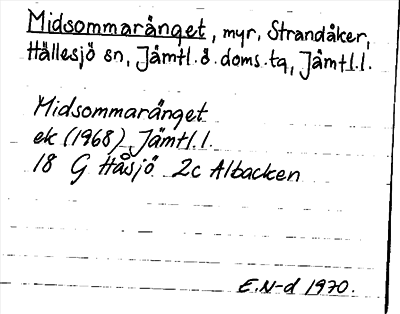 Midsommaränget, myr, Strandåker,
Hällesjö sn, Jämtl.ö.doms.tg, Jämtl.l.
Midsommaränget
ek (1968) Jämtl.l.
18 G Håsjö 2c Albacken
E.N-d 1970.